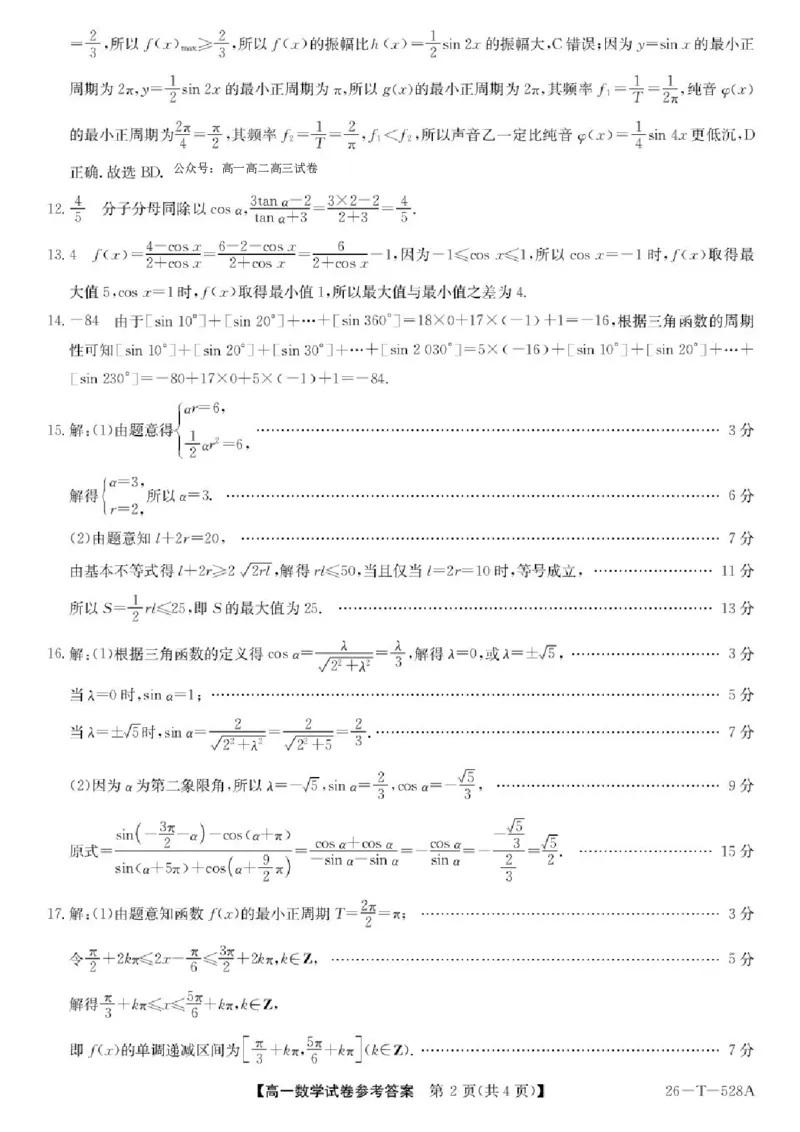 =2/3,所以 f(x)max≥2/3,所以 f(x)的振幅比h(x)=1/2 sin 2x 的振幅大,C错误;因为 y=sin x 的最小正
周期为 2π,y=1/2 sin 2x 的最小正周期为 π,所以 g(x)的最小正周期为 2π,其频率 f₁=1/T=1/2π,纯音 φ(x)
的最小正周期为2π/4=π/2,其频率 f₂=1/T=2/π,f₁<f₂,所以声音乙一定比纯音 φ(x)=1/4 sin 4x 更低沉,D
正确.故选 BD. 公众号:高一高二高三试卷
12. 4/5 分子分母同除以 cos α,(3tan α−2)/(tan α+3)=(3×2−2)/(2+3)=4/5.
13. 4 f(x)=(4−cos x)/(2+cos x)=(6−2−cos x)/(2+cos x)=6/(2+cos x)−1,因为−1≤cos x≤1,所以 cos x=−1 时,f(x)取得最
大值 5,cos x=1时,f(x)取得最小值 1,所以最大值与最小值之差为 4.
14. −84 由于[sin 10°]+[sin 20°]+…+[sin 360°]=18×0+17×(−1)+1=−16,根据三角函数的周期
性可知[sin 10°]+[sin 20°]+[sin 30°]+…+[sin 2 030°]=5×(−16)+[sin 10°]+[sin 20°]+…+
[sin 230°]=−80+17×0+5×(−1)+1=−84.
15. 解:(1)由题意得{αr=6, 1/2 αr²=6, …… 3分
解得{α=3, r=2, 所以 α=3. …… 6分
(2)由题意知 l+2r=20, …… 7分
由基本不等式得 l+2r≥2√(2rl),解得 rl≤50,当且仅当 l=2r=10 时,等号成立, …… 11分
所以 S=1/2 rl≤25,即 S 的最大值为 25. …… 13分
16. 解:(1)根据三角函数的定义得 cos α=λ/√(2²+λ²)=λ/3,解得 λ=0,或 λ=±√5, …… 3分
当 λ=0 时,sin α=1; …… 5分
当 λ=±√5时,sin α=2/√(2²+λ²)=2/√(2²+5)=2/3. …… 7分
(2)因为 α 为第二象限角,所以 λ=−√5,sin α=2/3,cos α=−√5/3, …… 9分
原式=(sin(−3π/2−α)−cos(α+π))/(sin(α+5π)+cos(α+9/2 π))=(cos α+cos α)/(−sin α−sin α)=−cos α/sin α=−(−√5/3)/(2/3)=√5/2. …… 15分
17. 解:(1)由题意知函数 f(x)的最小正周期 T=2π/2=π; …… 3分
令π/2+2kπ≤2x−π/6≤3π/2+2kπ,k∈Z, …… 5分
解得π/3+kπ≤x≤5π/6+kπ,k∈Z,
即 f(x)的单调递减区间为[π/3+kπ,5π/6+kπ](k∈Z). …… 7分
【高一数学试卷参考答案 第 2 页(共 4 页)】 26−T−528A